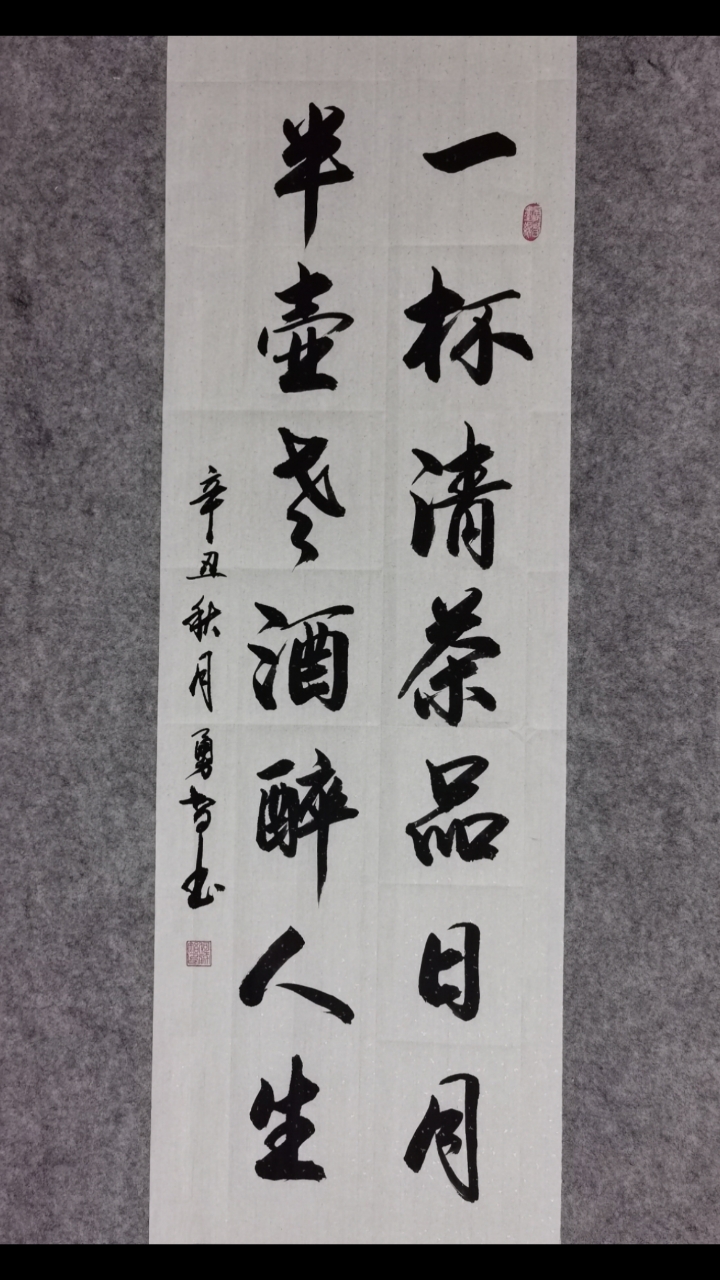 一杯清茶品日月
半壶老酒醉人生
辛丑秋月勇书